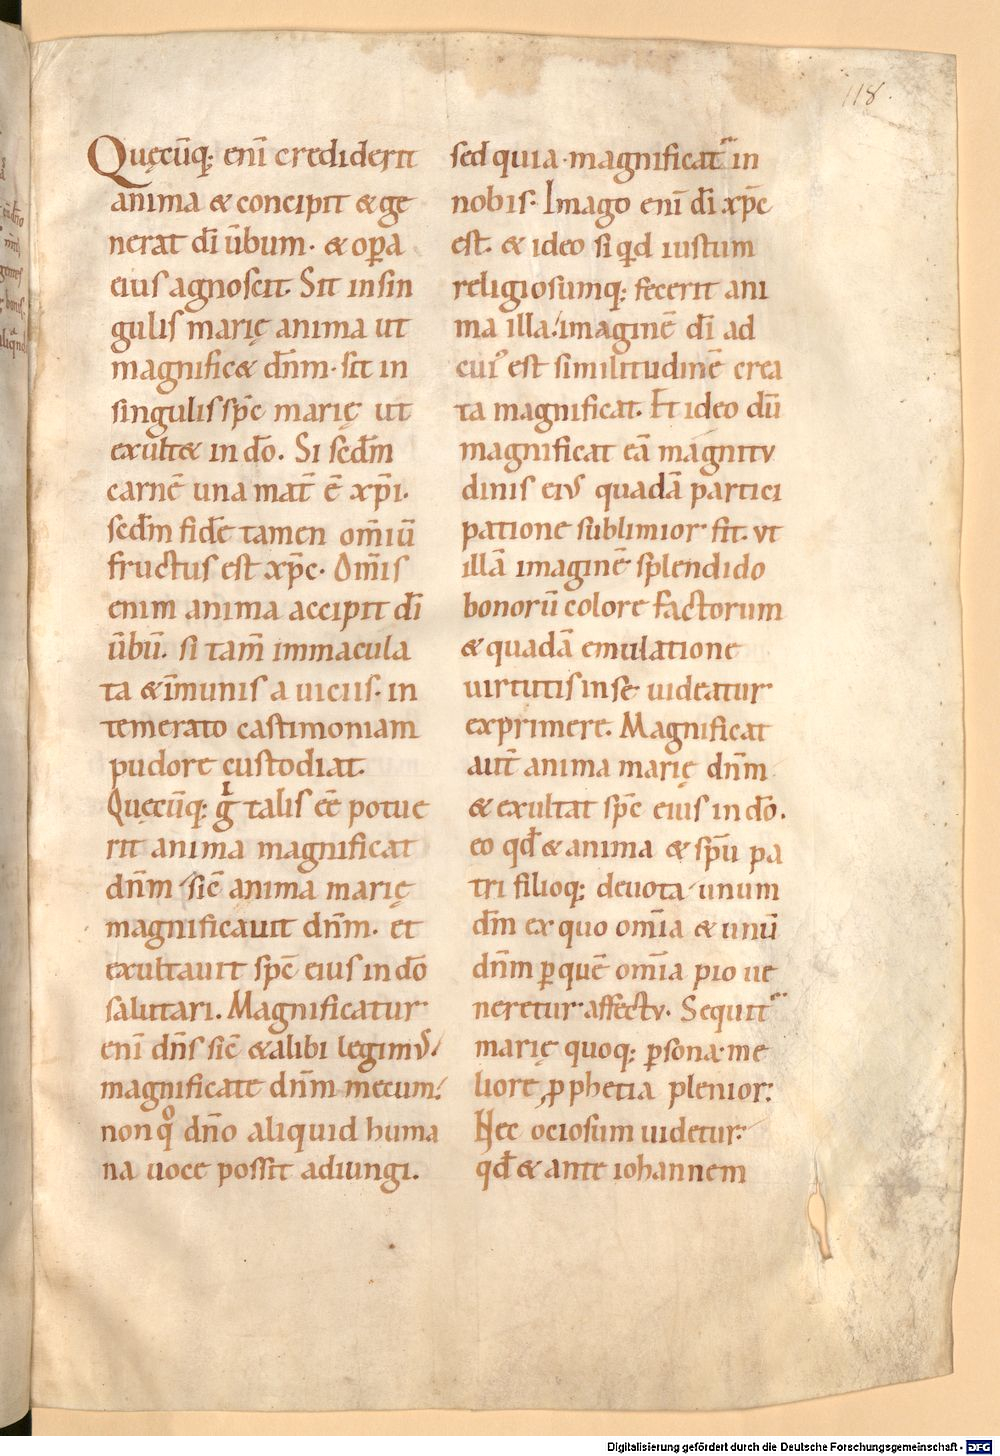 118.
Quęcūq; enī crediderit
anima & concipit & ge
nerat dī ūbum. & oꝑa
eius agnoscit. Sit in sin
gulis marię anima ut
magnific& dn̄m. sit in
singulis sp̄c marię ut
exult& in dō. Si scd̄m
carnē una mat̄ ē xp̄i.
scd̄m fidē tamen om̄iū
fructus est xp̄c. Om̄is
enim anima accipit dī
ūbū. si tam̄ immacula
ta & īmunis a uiciis. in
temerato castimoniam
pudore custodiat.
Quęcūq; g̊ talis eē potue
rit anima magnificat
dn̄m sic̄ anima marię
magnificauit dn̄m. et
exultauit sp̄c eius in dō
salutari. Magnificatur
enī dn̄s sic̄ & alibi legimꝰ
magnificate dn̄m mecum.
non qͦ dn̄o aliquid huma
na uoce possit adiungi.
sed quia magnificat᷑ in
nobis. Imago enī dī xp̄c
est. & ideo si qͥd iustum
religiosumq; fecerit ani
ma illa imaginē dī ad
cuiꝰ est similitudinē crea
ta magnificat. Et ideo dū
magnificat eā magnitu
dinis eiꝰ quadā partici
patione sublimior fit. ut
illā imaginē splendido
bonorū colore factorum
& quadā emulatione
uirtutis in se uideatur
exprimere. Magnificat
aut̄ anima marię dn̄m
& exultat sp̄c eius in dō.
eo qd̄ & anima & sp̄u pa
tri filioq; deuota unum
dm̄ ex quo om̄ia & unū
dn̄m ꝑ quē om̄ia pio ue
neretur affectu. Sequit᷑
marię quoq; ꝑsona me
liore ꝓphetia plenior.
Nec ociosum uidetur.
qd̄ & ante iohannem
Digitalisierung gefördert durch die Deutsche Forschungsgemeinschaft - DFG